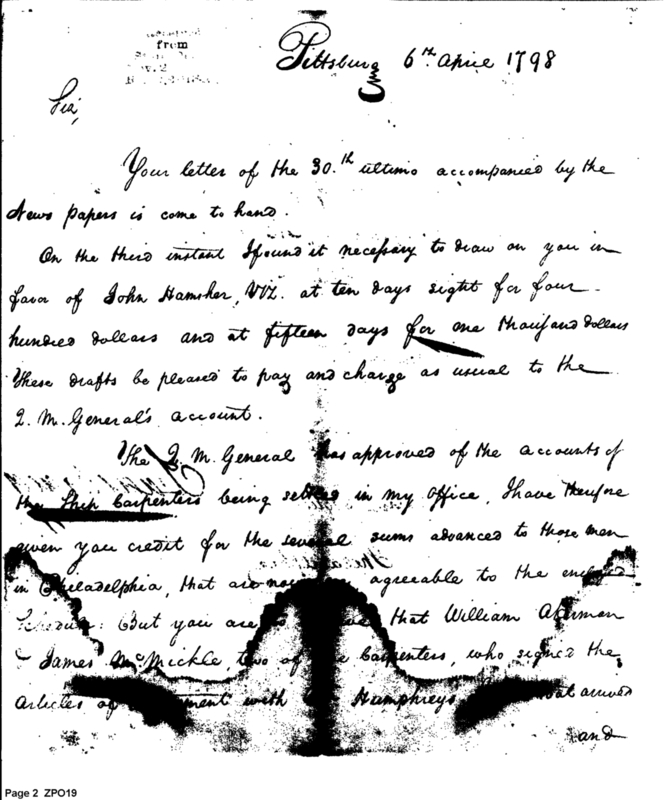 from
Pittsburg 6th April 1798
Sir,
Your letter of the 30.th ultimo accompanied by the
News papers is come to hand.
On the third instant I found it necessary to draw on you in
favor of John Hamsher, VIZ. at ten days sight for four
hundred dollars and at fifteen days for one thousand dollars
These drafts be pleased to pay and charge as usual to the
Q. M. General's account.
The Q. M. General has approved of the accounts of
the Ship Carpenters being settled in my office, I have therefore
given you credit for the several sums advanced to those men
in Philadelphia, that are agreeable to the
But you are that William
James McMickle, two of Carpenters, who signed the
articles of with Humphreys arrived
and
Page 2 ZPO19